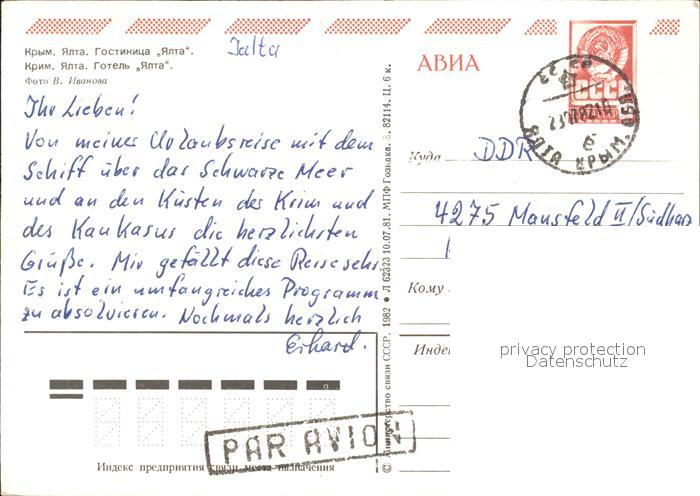 Крым. Ялта. Гостиница „Ялта“.
Крим. Ялта. Готель „Ялта“.
Фото В. Иванова
Jalta
АВИА
Ihr Lieben!
Von meiner Urlaubsreise mit dem
Schiff über das Schwarze Meer
und an den Küsten der Krim und
des Kaukasus die herzlichsten
Grüße. Mir gefällt diese Reise sehr.
Es ist ein umfangreiches Programm
zu absolvieren. Nochmals herzlich
Erhard.
Куда DDR
4275 Mansfeld II/Südharz
Кому
Индек
privacy protection
Datenschutz
PAR AVION
Индекс предприятия связи места назначения
© Министерство связи СССР. 1982 ● Л 62323 10.07.81. МПФ Гознака. З. 82114. Ц. 6 к.
СССР
ЯЛТА КРЫМ.